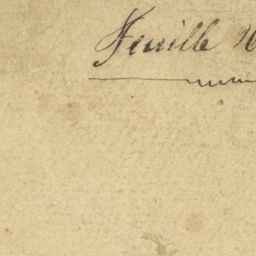 Feuille N